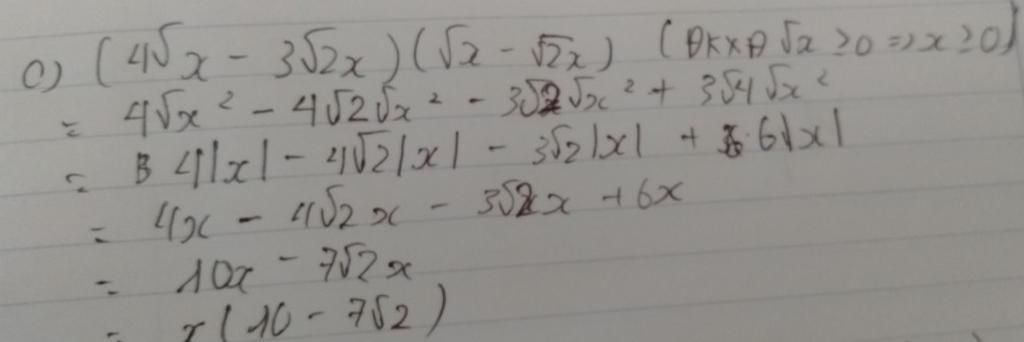 c) (4√x - 3√2x)(√x - √2x) (ĐKXĐ √x ≥0 => x ≥0)
= 4√x² - 4√2√x² - 3√2√x² + 3√4√x²
= 4|x| - 4√2|x| - 3√2|x| + 6|x|
= 4x - 4√2x - 3√2x + 6x
= 10x - 7√2x
= x(10 - 7√2)